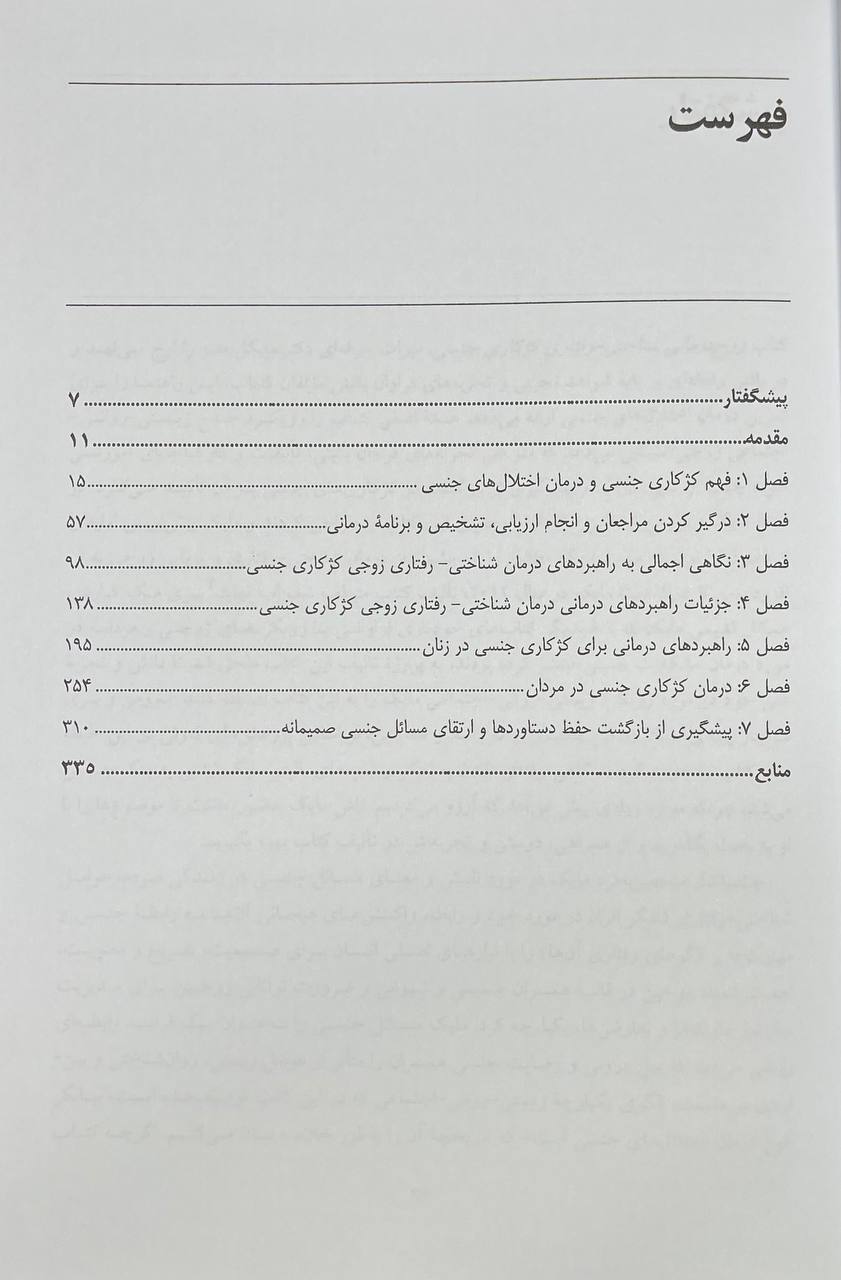 فهرست
پیشگفتار ........ ۷
مقدمه ........ ۱۱
فصل ۱: فهم کژکاری جنسی و درمان اختلال‌های جنسی ........ ۱۵
فصل ۲: درگیر کردن مراجعان و انجام ارزیابی، تشخیص و برنامۀ درمانی ........ ۵۷
فصل ۳: نگاهی اجمالی به راهبردهای درمان شناختی- رفتاری زوجی کژکاری جنسی ........ ۹۸
فصل ۴: جزئیات راهبردهای درمانی درمان شناختی- رفتاری زوجی کژکاری جنسی ........ ۱۳۸
فصل ۵: راهبردهای درمانی برای کژکاری جنسی در زنان ........ ۱۹۵
فصل ۶: درمان کژکاری جنسی در مردان ........ ۲۵۴
فصل ۷: پیشگیری از بازگشت حفظ دستاوردها و ارتقای مسائل جنسی صمیمانه ........ ۳۱۰
منابع ........ ۳۳۵